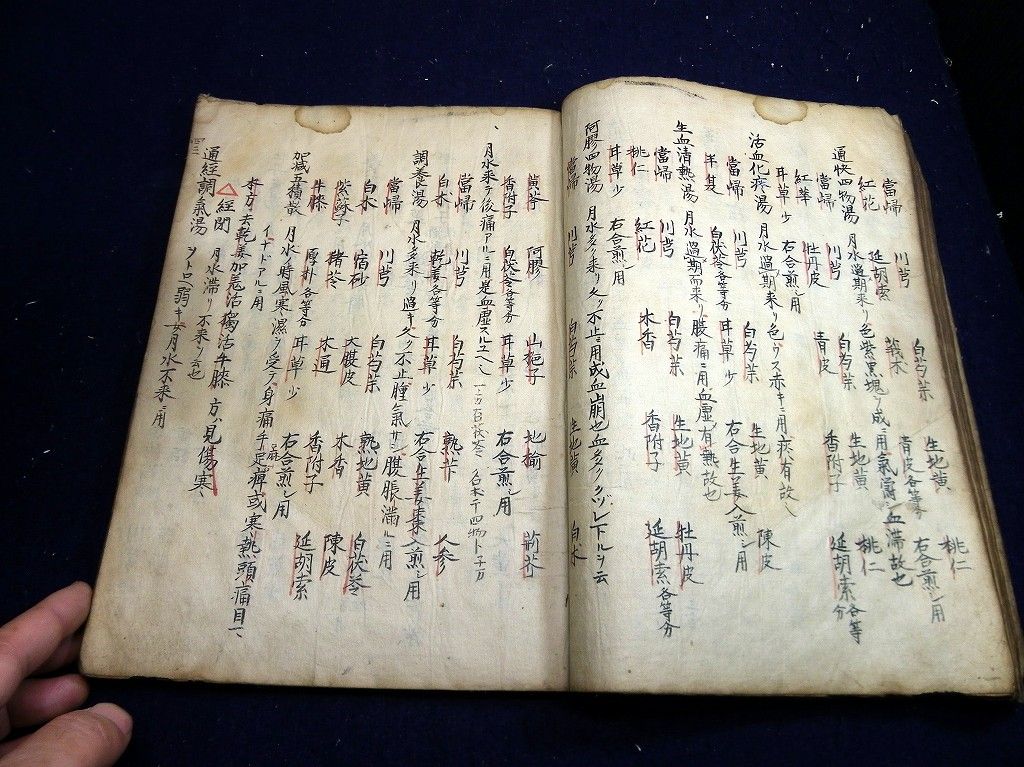 當帰 川芎 白芍薬 生地黄 桃仁
紅花 延胡索 莪朮 青皮各等分 右合煎メ用
通快四物湯 月水過期来リ色紫黒塊リ成ニ用氣滞血滞故也
當帰 牡丹皮 青皮 生地黄 桃仁
紅花 川芎 白芍薬 香附子 延胡索各等分
甘草少 右合煎メ用
活血化痰湯 月水過期来リ色ウス赤キニ用痰有故
當帰 川芎 白芍薬 生地黄 陳皮
半夏 白茯苓各等分 甘草少 右合生姜入煎メ用
生血清熱湯 月水過期而来リ腹痛ニ用血虚有熱故也
當帰 川芎 白芍薬 生地黄 牡丹皮
桃仁 紅花 木香 香附子 延胡索各等分
甘草少 右合煎メ用
阿膠四物湯 月水多ク来リ久ク不止ニ用或血崩也血多ククヅレ下ルヲ云
當帰 川芎 白芍薬 生地黄 白朮
黄芩 阿膠 山梔子 地榆 荊芥
香附子 白茯苓各等分 甘草少 右合煎メ用
月水来テ後痛アルニ用是血虚スルユヘ
當帰 川芎 白芍薬 熟苄 人参
白朮 乾姜各等分 甘草少 右合生姜棗入煎メ用
調養湯 月水多来リ過キ久ク不止腫氣サシ腹脹満ニ用
當帰 川芎 白芍薬 熟地黄 白茯苓
白朮 宿砂 大腹皮 木香 陳皮
紫蘇子 猪苓 木通 香附子 延胡索
牛膝 厚朴各等分 甘草少 右合煎メ用
加減五積散 月水ノ時風寒湿ヲ受テ身痛手足痺或寒熱頭痛目マイナドアルニ用
本方ニ去乾姜加羌活獨活牛膝 方ハ見傷寒
△経閉
通経調氣湯 月水滞リ不来ヲ云也
ヲトロヘ弱キ女月水不来ニ用